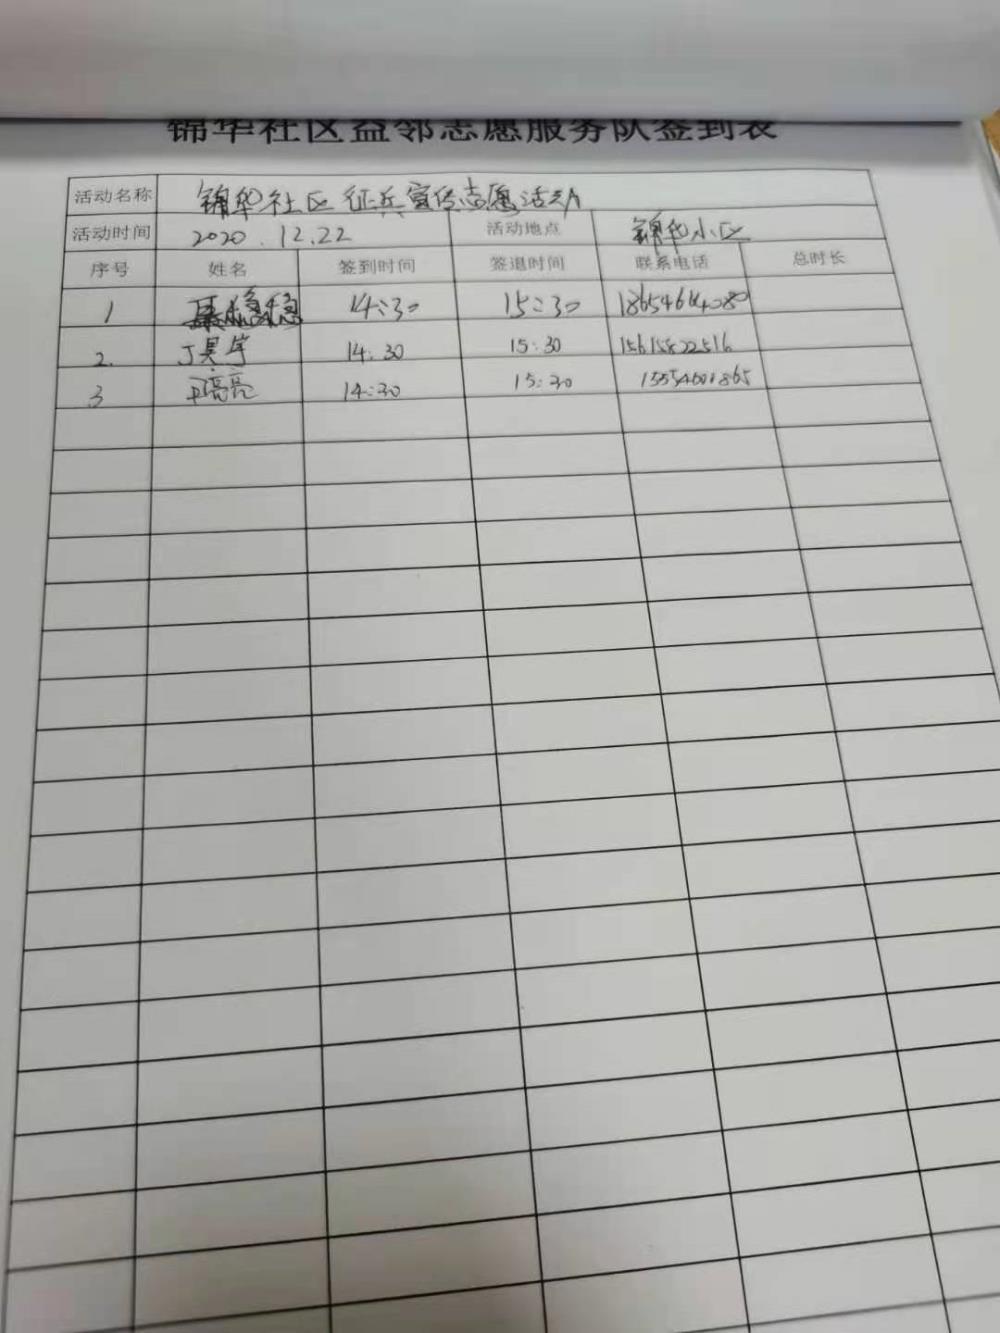 锦华社区益邻志愿服务队签到表
活动名称 锦华社区征兵宣传志愿活动
活动时间 2020.12.22 活动地点 锦华小区
序号 姓名 签到时间 签退时间 联系电话 总时长
1 稳稳 14:30 15:30
2. 丁昊宇 14:30 15:30 15615822516
3 亮亮 14:30 15:30 15554601865